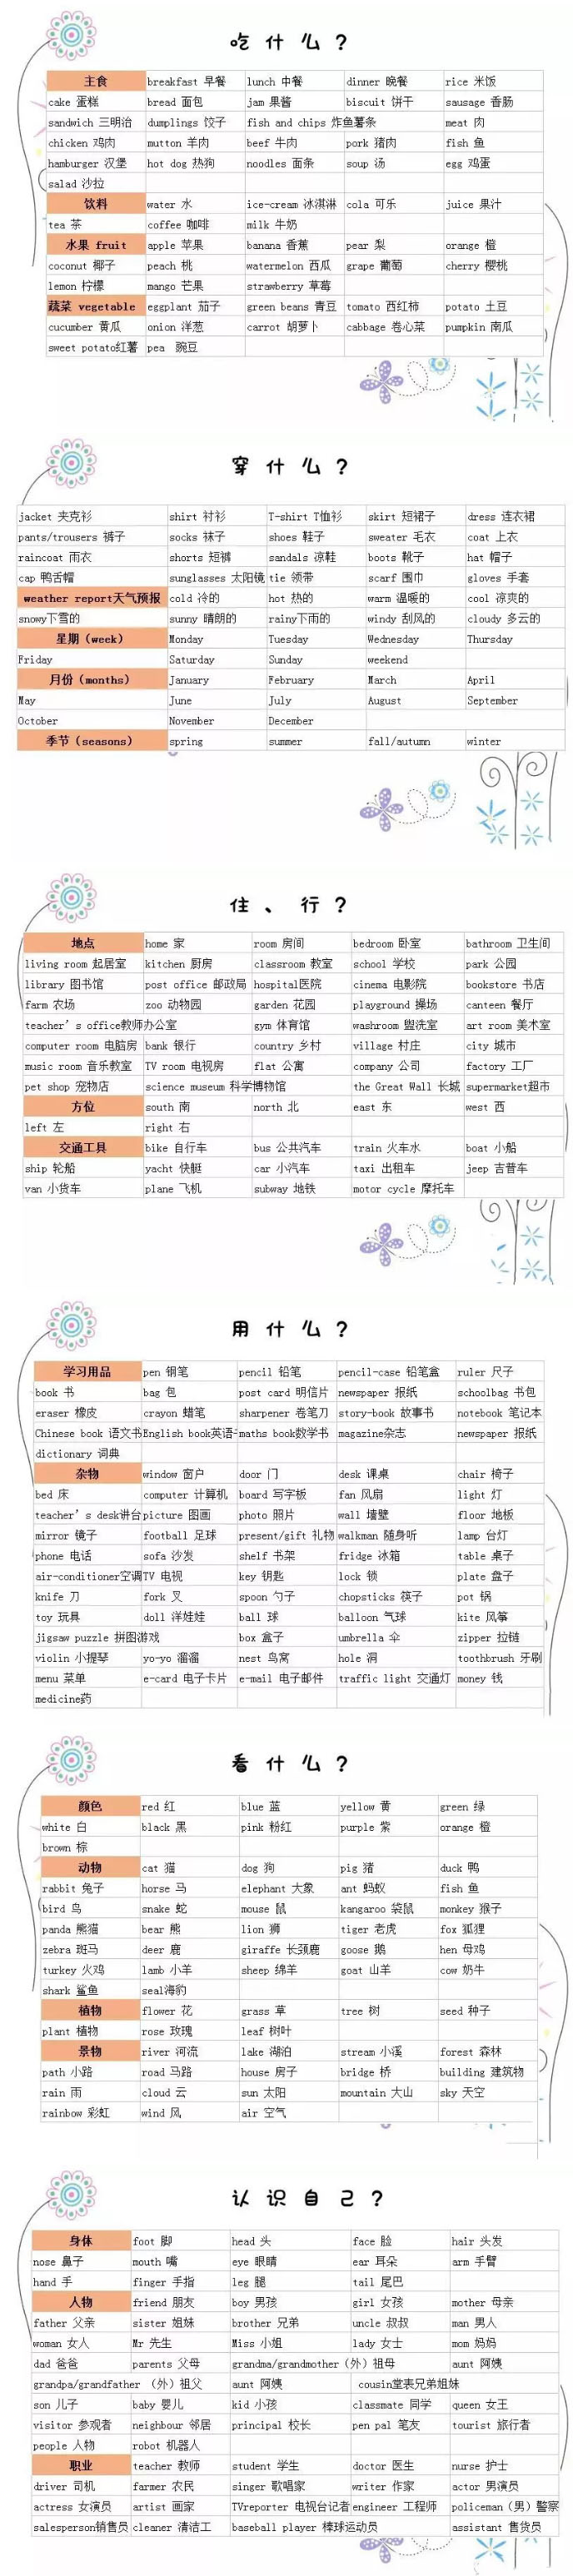 吃 什 么 ?
主食 breakfast 早餐 lunch 中餐 dinner 晚餐 rice 米饭
cake 蛋糕 bread 面包 jam 果酱 biscuit 饼干 sausage 香肠
sandwich 三明治 dumplings 饺子 fish and chips 炸鱼薯条 meat 肉
chicken 鸡肉 mutton 羊肉 beef 牛肉 pork 猪肉 fish 鱼
hamburger 汉堡 hot dog 热狗 noodles 面条 soup 汤 egg 鸡蛋
salad 沙拉
饮料 water 水 ice-cream 冰淇淋 cola 可乐 juice 果汁
tea 茶 coffee 咖啡 milk 牛奶
水果 fruit apple 苹果 banana 香蕉 pear 梨 orange 橙
coconut 椰子 peach 桃 watermelon 西瓜 grape 葡萄 cherry 樱桃
lemon 柠檬 mango 芒果 strawberry 草莓
蔬菜 vegetable eggplant 茄子 green beans 青豆 tomato 西红柿 potato 土豆
cucumber 黄瓜 onion 洋葱 carrot 胡萝卜 cabbage 卷心菜 pumpkin 南瓜
sweet potato红薯 pea 豌豆
穿 什 么 ?
jacket 夹克衫 shirt 衬衫 T-shirt T恤衫 skirt 短裙子 dress 连衣裙
pants/trousers 裤子 socks 袜子 shoes 鞋子 sweater 毛衣 coat 上衣
raincoat 雨衣 shorts 短裤 sandals 凉鞋 boots 靴子 hat 帽子
cap 鸭舌帽 sunglasses 太阳镜 tie 领带 scarf 围巾 gloves 手套
weather report天气预报 cold 冷的 hot 热的 warm 温暖的 cool 凉爽的
snowy下雪的 sunny 晴朗的 rainy下雨的 windy 刮风的 cloudy 多云的
星期（week） Monday Tuesday Wednesday Thursday
Friday Saturday Sunday weekend
月份（months） January February March April
May June July August September
October November December
季节（seasons） spring summer fall/autumn winter
住 、 行 ?
地点 home 家 room 房间 bedroom 卧室 bathroom 卫生间
living room 起居室 kitchen 厨房 classroom 教室 school 学校 park 公园
library 图书馆 post office 邮政局 hospital医院 cinema 电影院 bookstore 书店
farm 农场 zoo 动物园 garden 花园 playground 操场 canteen 餐厅
teacher’s office教师办公室 gym 体育馆 washroom 盥洗室 art room 美术室
computer room 电脑房 bank 银行 country 乡村 village 村庄 city 城市
music room 音乐教室 TV room 电视房 flat 公寓 company 公司 factory 工厂
pet shop 宠物店 science museum 科学博物馆 the Great Wall 长城 supermarket超市
方位 south 南 north 北 east 东 west 西
left 左 right 右
交通工具 bike 自行车 bus 公共汽车 train 火车水 boat 小船
ship 轮船 yacht 快艇 car 小汽车 taxi 出租车 jeep 吉普车
van 小货车 plane 飞机 subway 地铁 motor cycle 摩托车
用 什 么 ?
学习用品 pen 钢笔 pencil 铅笔 pencil-case 铅笔盒 ruler 尺子
book 书 bag 包 post card 明信片 newspaper 报纸 schoolbag 书包
eraser 橡皮 crayon 蜡笔 sharpener 卷笔刀 story-book 故事书 notebook 笔记本
Chinese book 语文书 English book英语 maths book数学书 magazine杂志 newspaper 报纸
dictionary 词典
杂物 window 窗户 door 门 desk 课桌 chair 椅子
bed 床 computer 计算机 board 写字板 fan 风扇 light 灯
teacher’s desk讲台 picture 图画 photo 照片 wall 墙壁 floor 地板
mirror 镜子 football 足球 present/gift 礼物 walkman 随身听 lamp 台灯
phone 电话 sofa 沙发 shelf 书架 fridge 冰箱 table 桌子
air-conditioner空调 TV 电视 key 钥匙 lock 锁 plate 盘子
knife 刀 fork 叉 spoon 勺子 chopsticks 筷子 pot 锅
toy 玩具 doll 洋娃娃 ball 球 balloon 气球 kite 风筝
jigsaw puzzle 拼图游戏 box 盒子 umbrella 伞 zipper 拉链
violin 小提琴 yo-yo 溜溜 nest 鸟窝 hole 洞 toothbrush 牙刷
menu 菜单 e-card 电子卡片 e-mail 电子邮件 traffic light 交通灯 money 钱
medicine药
看 什 么 ?
颜色 red 红 blue 蓝 yellow 黄 green 绿
white 白 black 黑 pink 粉红 purple 紫 orange 橙
brown 棕
动物 cat 猫 dog 狗 pig 猪 duck 鸭
rabbit 兔子 horse 马 elephant 大象 ant 蚂蚁 fish 鱼
bird 鸟 snake 蛇 mouse 鼠 kangaroo 袋鼠 monkey 猴子
panda 熊猫 bear 熊 lion 狮 tiger 老虎 fox 狐狸
zebra 斑马 deer 鹿 giraffe 长颈鹿 goose 鹅 hen 母鸡
turkey 火鸡 lamb 小羊 sheep 绵羊 goat 山羊 cow 奶牛
shark 鲨鱼 seal海豹
植物 flower 花 grass 草 tree 树 seed 种子
plant 植物 rose 玫瑰 leaf 树叶
景物 river 河流 lake 湖泊 stream 小溪 forest 森林
path 小路 road 马路 house 房子 bridge 桥 building 建筑物
rain 雨 cloud 云 sun 太阳 mountain 大山 sky 天空
rainbow 彩虹 wind 风 air 空气
认 识 自 己 ?
身体 foot 脚 head 头 face 脸 hair 头发
nose 鼻子 mouth 嘴 eye 眼睛 ear 耳朵 arm 手臂
hand 手 finger 手指 leg 腿 tail 尾巴
人物 friend 朋友 boy 男孩 girl 女孩 mother 母亲
father 父亲 sister 姐妹 brother 兄弟 uncle 叔叔 man 男人
woman 女人 Mr 先生 Miss 小姐 lady 女士 mom 妈妈
dad 爸爸 parents 父母 grandma/grandmother（外）祖母 aunt 阿姨
grandpa/grandfather （外）祖父 aunt 阿姨 cousin堂表兄弟姐妹
son 儿子 baby 婴儿 kid 小孩 classmate 同学 queen 女王
visitor 参观者 neighbour 邻居 principal 校长 pen pal 笔友 tourist 旅行者
people 人物 robot 机器人
职业 teacher 教师 student 学生 doctor 医生 nurse 护士
driver 司机 farmer 农民 singer 歌唱家 writer 作家 actor 男演员
actress 女演员 artist 画家 TVreporter 电视台记者 engineer 工程师 policeman（男）警察
salesperson销售员 cleaner 清洁工 baseball player 棒球运动员 assistant 售货员